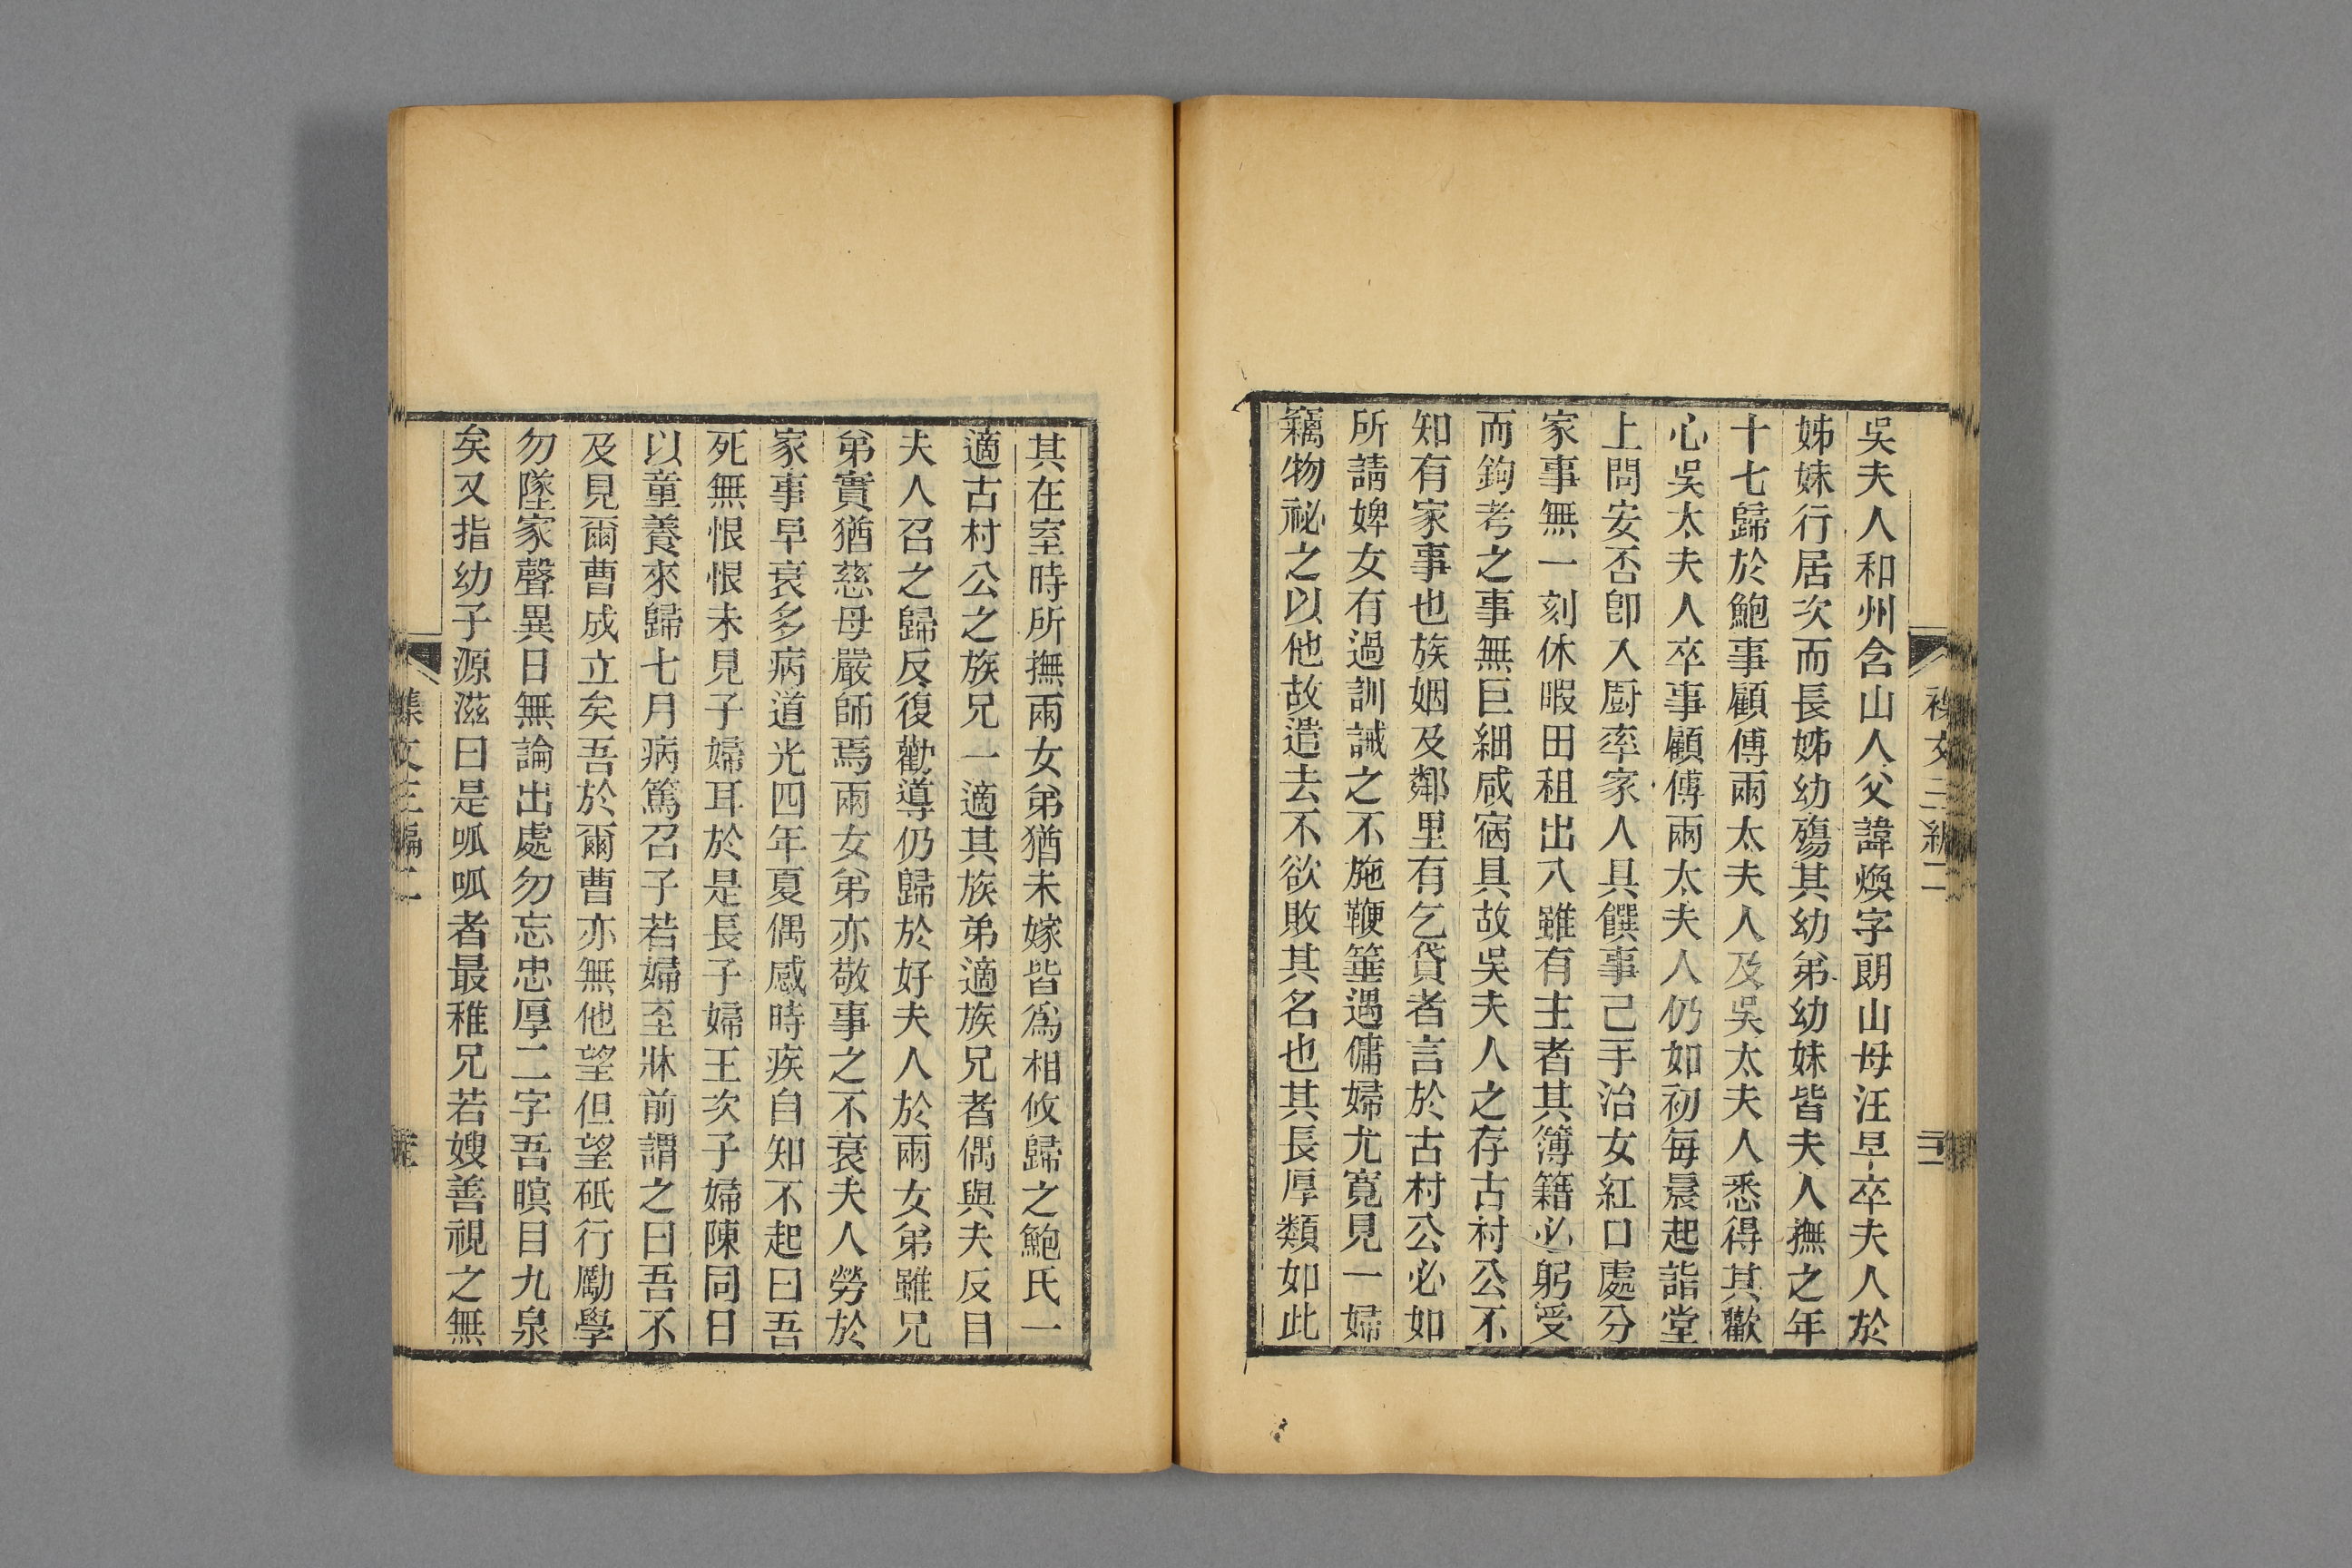 吳夫人和州含山人父諱煥字朗山母汪早卒夫人於
姊妹行居次而長姊幼殤其幼弟幼妹皆夫人撫之年
十七歸於鮑事顧傅兩太夫人及吳太夫人悉得其歡
心吳太夫人卒事顧傅兩太夫人仍如初每晨起詣堂
上問安否卽入廚率家人具饌事己手治女紅口處分
家事無一刻休暇田租出入雖有主者其簿籍必躬受
而鉤考之事無巨細咸宿具故吳夫人之存古村公不
知有家事也族姻及鄰里有乞貸者言於古村公必如
所請婢女有過訓誡之不施鞭箠遇傭婦尤寬見一婦
竊物祕之以他故遣去不欲敗其名也其長厚類如此
其在室時所撫兩女弟猶未嫁皆爲相攸歸之鮑氏一
適古村公之族兄一適其族弟適族兄者偶與夫反目
夫人召之歸反復勸導仍歸於好夫人於兩女弟雖兄
弟實猶慈母嚴師焉兩女弟亦敬事之不衰夫人勞於
家事早衰多病道光四年夏偶感時疾自知不起曰吾
死無恨恨未見子婦耳於是長子婦王次子婦陳同日
以童養來歸七月病篤召子若婦至牀前謂之曰吾不
及見爾曹成立矣吾於爾曹亦無他望但望砥行勵學
勿墜家聲異日無論出處勿忘忠厚二字吾瞑目九泉
矣又指幼子源滋曰是呱呱者最稚兄若嫂善視之無